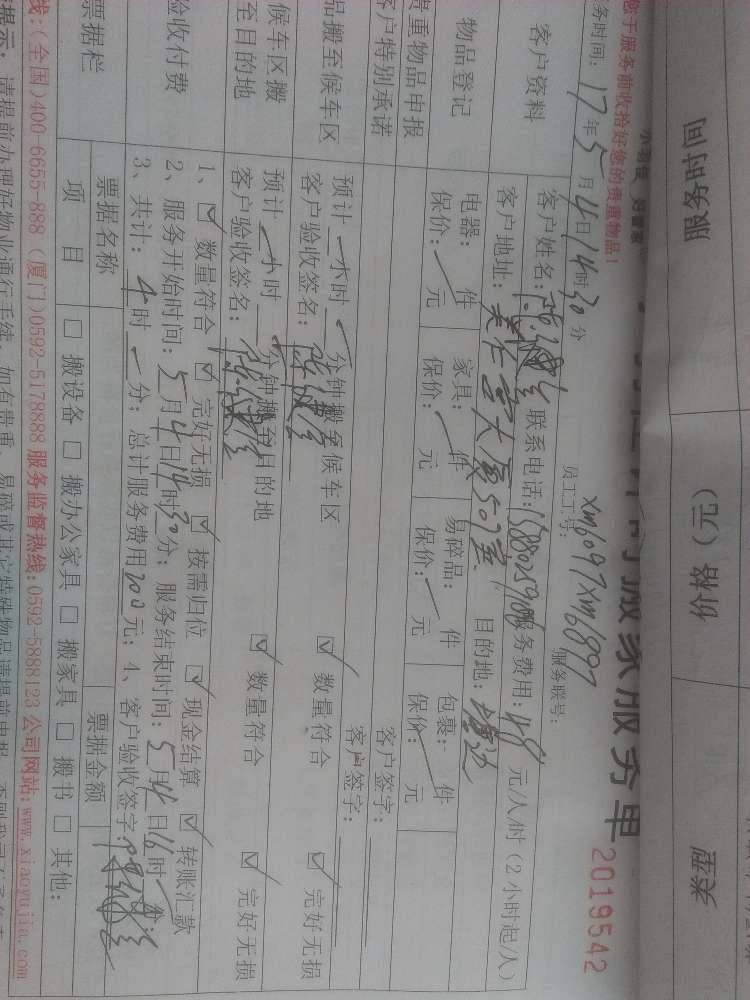 服务时间 价格（元） 类型
搬家服务单 2019542
您于服务前收拾好您的贵重物品！
务时间：17年5月4日14时30分 员工工号：xm6097xm6897 服务联号：
客户资料
客户姓名： 联系电话： 服务费用：48元/人/时（2小时起/人）
客户地址： 大厦507室 目的地：
物品登记
电器： 件 家具： 件 易碎品： 件 包裹： 件
保价：/元 保价：/元 保价：/元 保价：/元
贵重物品申报 客户签字：
客户特别承诺 客户签字：
品搬至候车区
预计一小时 分钟搬至候车区 ☑ 数量符合 ☑ 完好无损
客户验收签名：
候车区搬
至目的地
预计一小时 分钟搬至目的地 ☑ 数量符合 ☑ 完好无损
客户验收签名：
验收付费
1、☑ 数量符合 ☑ 完好无损 ☑ 按需归位 ☑ 现金结算 ☑ 转账汇款
2、服务开始时间：5月4日14时30分；服务结束时间：5月4日16时 分；
3、共计：4时一分；总计服务费用200元；4、客户验收签字：
票据栏
票据名称 票据金额
项 目 □ 搬设备 □ 搬办公家具 □ 搬家具 □ 搬书 □ 其他：
线：（全国）400-6655-888（厦门）0592-5178888 服务监督热线：0592-5888123 公司网站：www.xiaoyujia.com
提示：请提前办理好物业通行手续，如有贵重、易碎或其它特殊物品请提前申报，否则